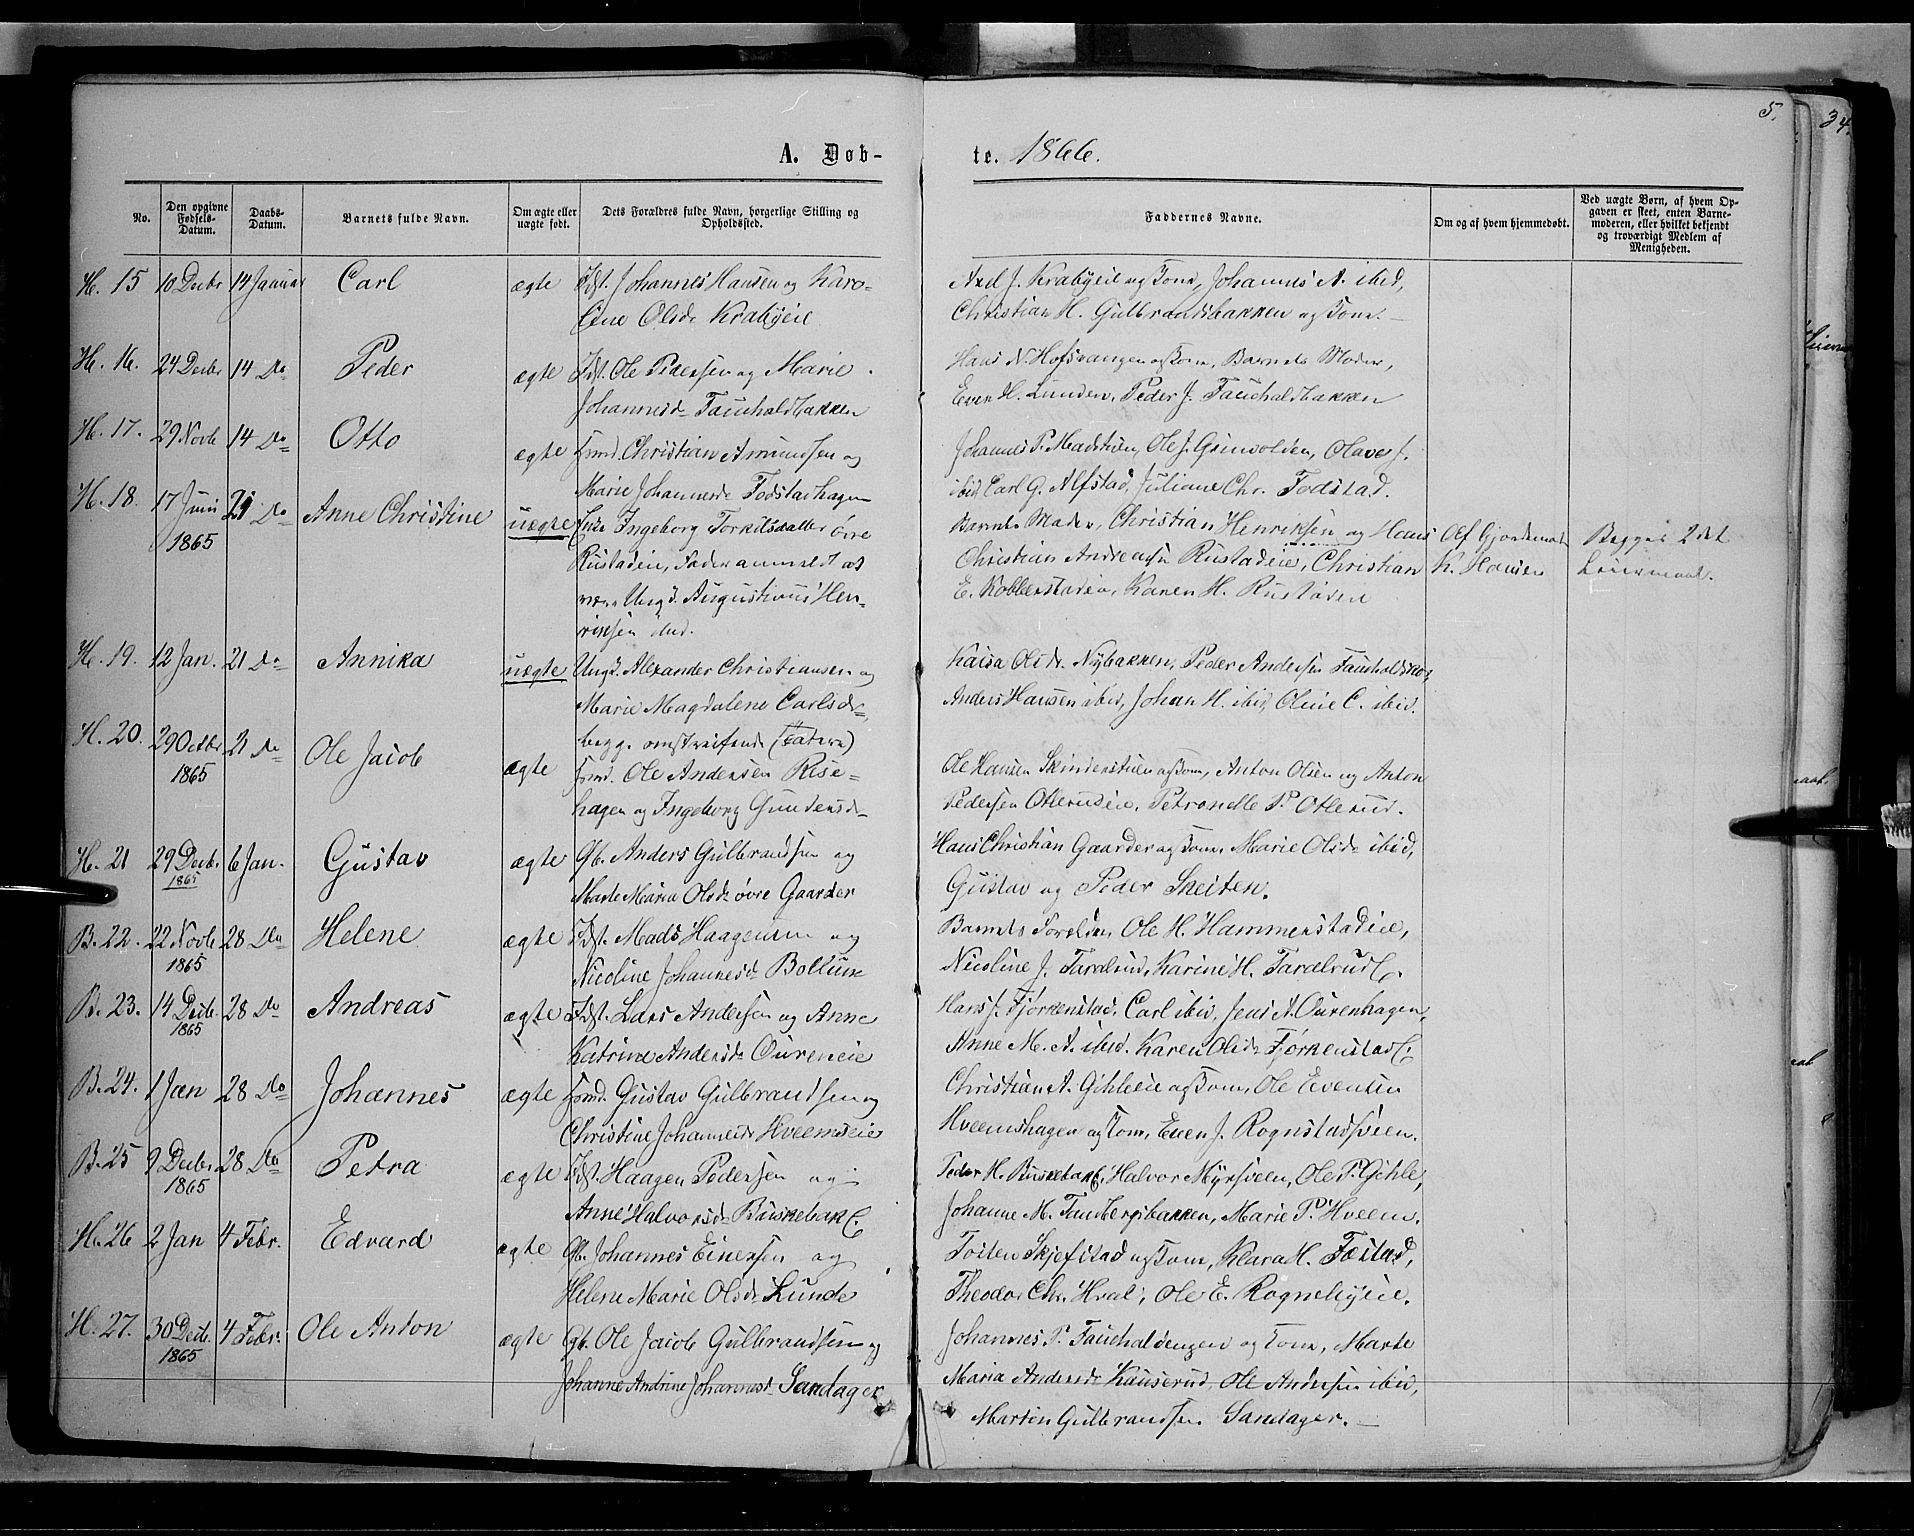 5.
34.
A. Døb-
te. 1866.
No.
Den opgivne Fødsels-Datum.
Daabs-Datum.
Barnets fulde Navn.
Om ægte eller uægte født.
Dets Forældres fulde Navn, borgerlige Stilling og Opholdssted.
Faddernes Navne.
Om og af hvem hjemmedøbt.
Ved uægte Børn, af hvem Opgaven er skeet, enten Barnemoderen, eller hvilket bekjendt og troværdigt Medlem af Menigheden.
H. 15 10 Decbr 14 Januar Carl ægte Idst. Johannes Hansen og Karo-
line Olsdr Krabyeie
Axel J. Krabyeie og Kone, Johannes A. ibid,
Christian H. Gulbrandsbakken og Kone.
H. 16. 24 Decbr 14 Do Peder ægte Idst. Ole Pedersen og Marie
Johannesd Fauchaldbakken
Hans N. Hofsvangen og Kone, Barnets Moder,
Even H. Lunden, Peder J. Fauchaldbakken
H. 17. 29 Novb 14 Do Otto ægte Gmd. Christian Amundsen og
Marie Johannesdr Fodstadhagen
Johannes P. Madstuen, Ole J. Grinvolden, Olave J.
ibid, Carl G. Alfstad, Juliane Chr. Fodstad.
H. 18. 17 Juni 21 Do Anne Christine uægte Ingeborg Torkilsdatter øvre
1865
Rustadeie, Fader anmeldt at
være Ungk. Augustinus Hen-
riksen ibid.
Barnets Moder, Christian Henriksen og Hans
Christian Andreasen Rustadeie, Christian
E. Koblerstadeie, Karen H. Rustadeie
Af Gjordemoder
K. Hansen
Begges 2det
Leiermaal.
H. 19. 12 Jan. 21 Do Annika uægte Ungk. Alexander Christiansen og
Marie Magdalene Carlsdr,
begge omstreifende (Tatere)
Kaisa Olsdr Nybakken, Peder Andersen Fauchaldskov,
Anders Hansen ibid, Johan H. ibid, Oline C. ibid.
H. 20. 29 Octbr 21 Do Ole Jacob ægte Gmd. Ole Andersen Rise-
1865
hagen og Ingeborg Gundersdr
Ole Hansen Skinderstuen og Kone, Anton Olsen og Anton
Pedersen Otterudeie, Petronelle P. Otterud.
H. 21 29 Decb. 6 Jan. Gustav ægte Gb. Anders Gulbrandsen og
1865
Marte Maria Olsdr øvre Gaarder
Hans Christian Gaarder og Kone, Marie Olsdr ibid,
Gustav og Peder Skeiten.
B. 22. 22 Novb 28 Do Helene ægte Idst. Mads Haagensen og
1865
Nicoline Johannesd Bollum
Barnets Forældre, Ole H. Hammerstadeie,
Nicoline J. Faralrud, Karine H. Faralrud E.
B. 23. 14 Decb. 28 Do Andreas ægte Idst. Lars Andersen og Anne
1865
Katrine Andersdr Oureneie
Hans J. Fjørkenstad, Carl ibid, Jens A. Ourenhagen,
Anne M. A. ibid. Karen Olsdr Fjørkenstad E.
B. 24. 1 Jan 28 Do Johannes ægte Gmd. Gustav Gulbrandsen og
Christine Johannesdr Hveemseie
Christian A. Gihleeie og Kone, Ole Evensen
Hveemshagen og Kone, Even J. Rognstadsveen.
B. 25 9 Decbr 28 Do Petra ægte Idst. Haagen Pedersen og
1865
Anne Halvorsdr Buskebak E.
Peder H. Buskebak E. Halvor Myrsveen, Ole P. Gihle,
Johanne M. Fauchersbakken, Marie P. Hveem.
H. 26 2 Jan 4 Febr. Edvard ægte Gb. Johannes Einersen og
Helene Marie Olsdr Lunde
Tosten Skjefstad og Kone, Klara H. Fæstad,
Theodor Chr. Hval, Ole E. Rognebyeie.
H. 27. 30 Decb. 4 Febr. Ole Anton ægte Gb. Ole Jacob Gulbrandsen og
1865
Johanne Andrine Johannesd Sandager
Johannes P. Fauchaldengen og Kone, Marte
Maria Andersdr Kauserud, Ole Andersen ibid,
Martin Gulbrandsen Sandager.